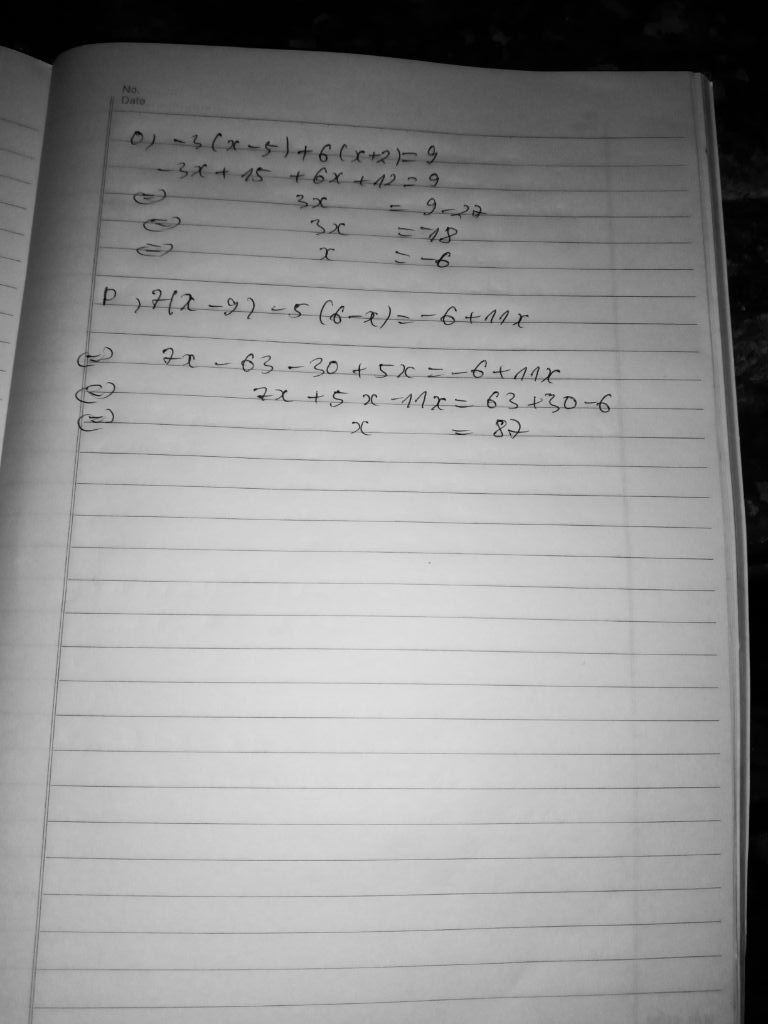 No.
Date
o) -3(x-5)+6(x+2)= 9
-3x+ 15 +6x+12 = 9
⇔ 3x = 9-27
⇔ 3x = -18
⇔ x = -6
P, 7(x-9) -5(6-x)= -6+11x
⇔ 7x - 63 - 30 + 5x = -6+11x
⇔ 7x +5x -11x = 63+30-6
⇔ x = 87